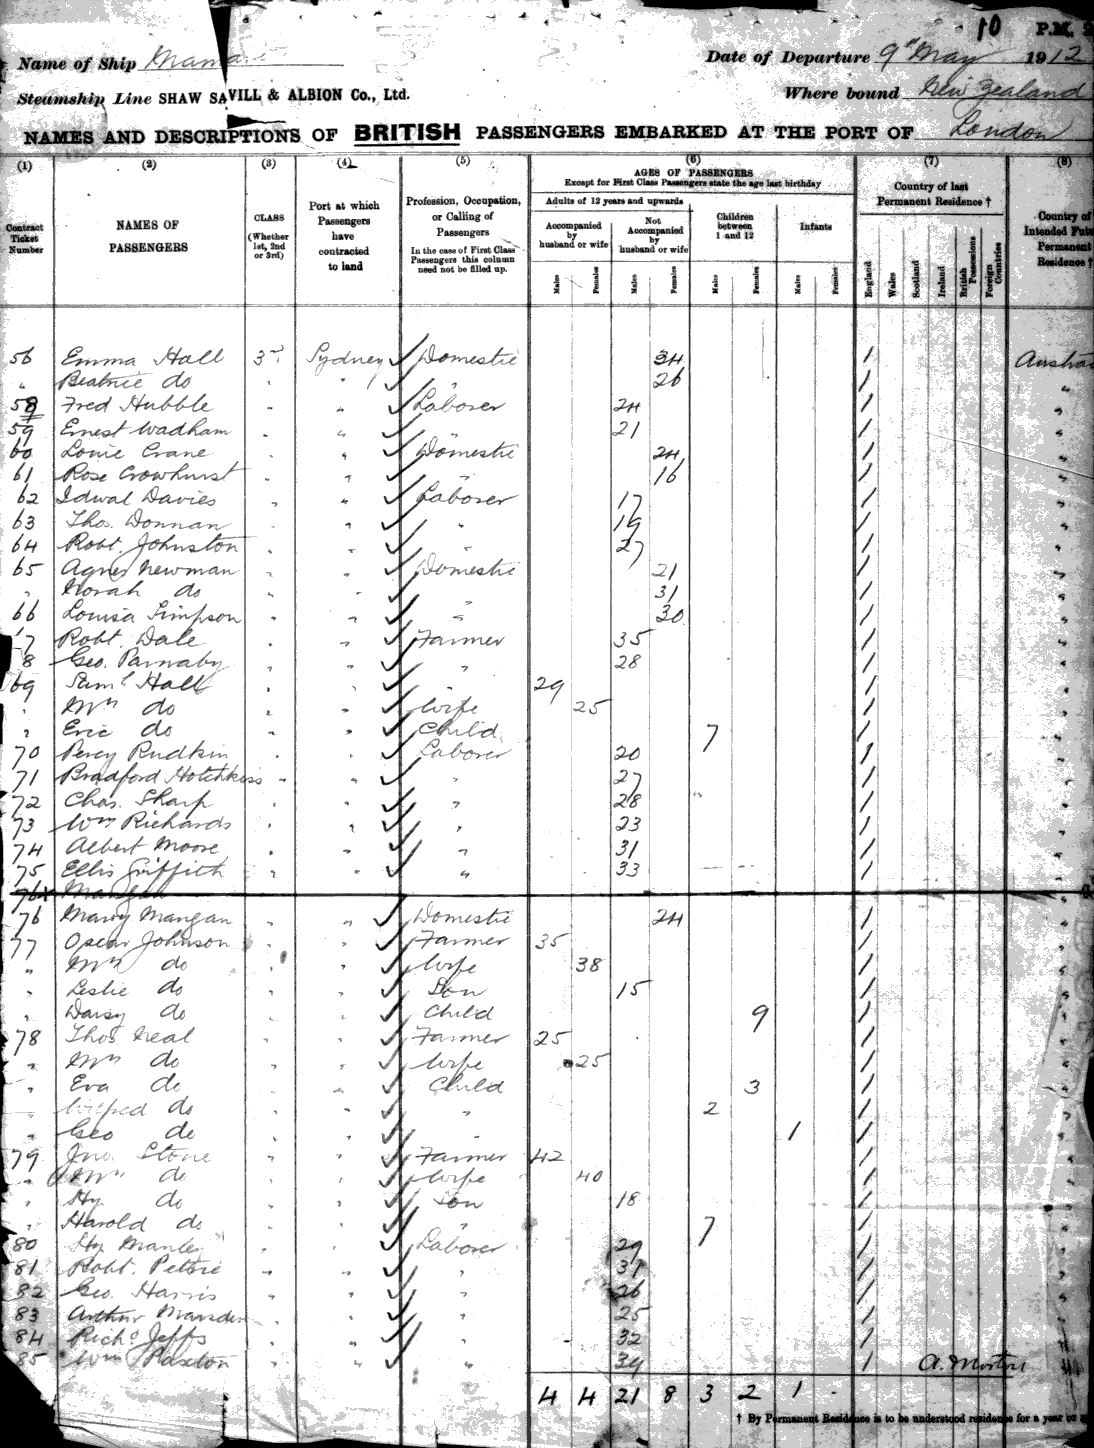 10 P.M. 2
Name of Ship Mamari Date of Departure 9th May 1912
Steamship Line SHAW SAVILL & ALBION Co., Ltd. Where bound New Zealand
NAMES AND DESCRIPTIONS OF BRITISH PASSENGERS EMBARKED AT THE PORT OF London
(1) (2) (3) (4) (5) (6) (7) (8)
Contract Ticket Number
NAMES OF PASSENGERS
CLASS (Whether 1st, 2nd or 3rd)
Port at which Passengers have contracted to land
Profession, Occupation, or Calling of Passengers
In the case of First Class Passengers this column need not be filled up.
AGES OF PASSENGERS
Except for First Class Passengers state the age last birthday
Adults of 12 years and upwards
Accompanied by husband or wife
Not Accompanied by husband or wife
Children between 1 and 12
Infants
Males Females Males Females Males Females Males Females
Country of last Permanent Residence †
England Wales Scotland Ireland British Possessions Foreign Countries
Country of Intended Futu Permanent Residence †
56 Emma Hall 3rd Sydney ✓ Domestic 34 / Austra
" Beatrice do " " ✓ " 26 / "
58 Fred Hubble " " ✓ Laborer 24 / "
59 Ernest Wadham " " ✓ " 21 / "
60 Louie Crane " " ✓ Domestic 24 / "
61 Rose Crowhurst " " ✓ " 16 / "
62 Idwal Davies " " ✓ Laborer 17 / "
63 Thos. Donnan " " ✓ " 19 / "
64 Robt. Johnston " " ✓ " 27 / "
65 Agnes Newman " " ✓ Domestic 21 / "
" Norah do " " ✓ " 31 / "
66 Louisa Simpson " " ✓ " 30 / "
7 Robt. Dale " " ✓ Farmer 35 / "
8 Geo. Parnaby " " ✓ " 28 / "
69 Saml Hall " " ✓ " 29 / "
" Mrs do " " ✓ Wife 25 / "
" Eric do " " ✓ Child 7 / "
70 Percy Rudkin " " ✓ Laborer 20 / "
71 Bradford Hotchkiss " " ✓ " 27 / "
72 Chas. Sharp " " ✓ " 28 / "
73 Wm Richards " " ✓ " 23 / "
74 Albert Moore " " ✓ " 31 / "
75 Ellis Griffith " " ✓ " 33 / "
76 Mangan
76 Mary Mangan " " ✓ Domestic 24 / "
77 Oscar Johnson " " ✓ Farmer 35 / "
" Mrs do " " ✓ Wife 38 / "
" Leslie do " " ✓ Son 15 / "
" Daisy do " " ✓ Child 9 / "
78 Thos Neal " " ✓ Farmer 25 / "
" Mrs do " " ✓ Wife 25 / "
" Eva do " " ✓ Child 3 / "
" Wilfred do " " ✓ " 2 / "
" Geo do " " ✓ " 1 / "
79 Jno. Stone " " ✓ Farmer 42 / "
" Mrs do " " ✓ Wife 40 / "
" Hy do " " ✓ Son 18 / "
" Harold do " " ✓ " 7 / "
80 Hy Manley " " ✓ Laborer 29 / "
81 Robt. Petrie " " ✓ " 37 / "
82 Geo. Harris " " ✓ " 26 / "
83 Arthur Marsden " " ✓ " 25 / "
84 Richd Jeffs " " ✓ " 32 / "
85 Wm Paxton " " ✓ " 39 / A. Morton
4 4 21 8 3 2 1 -
† By Permanent Residence is to be understood residence for a year or